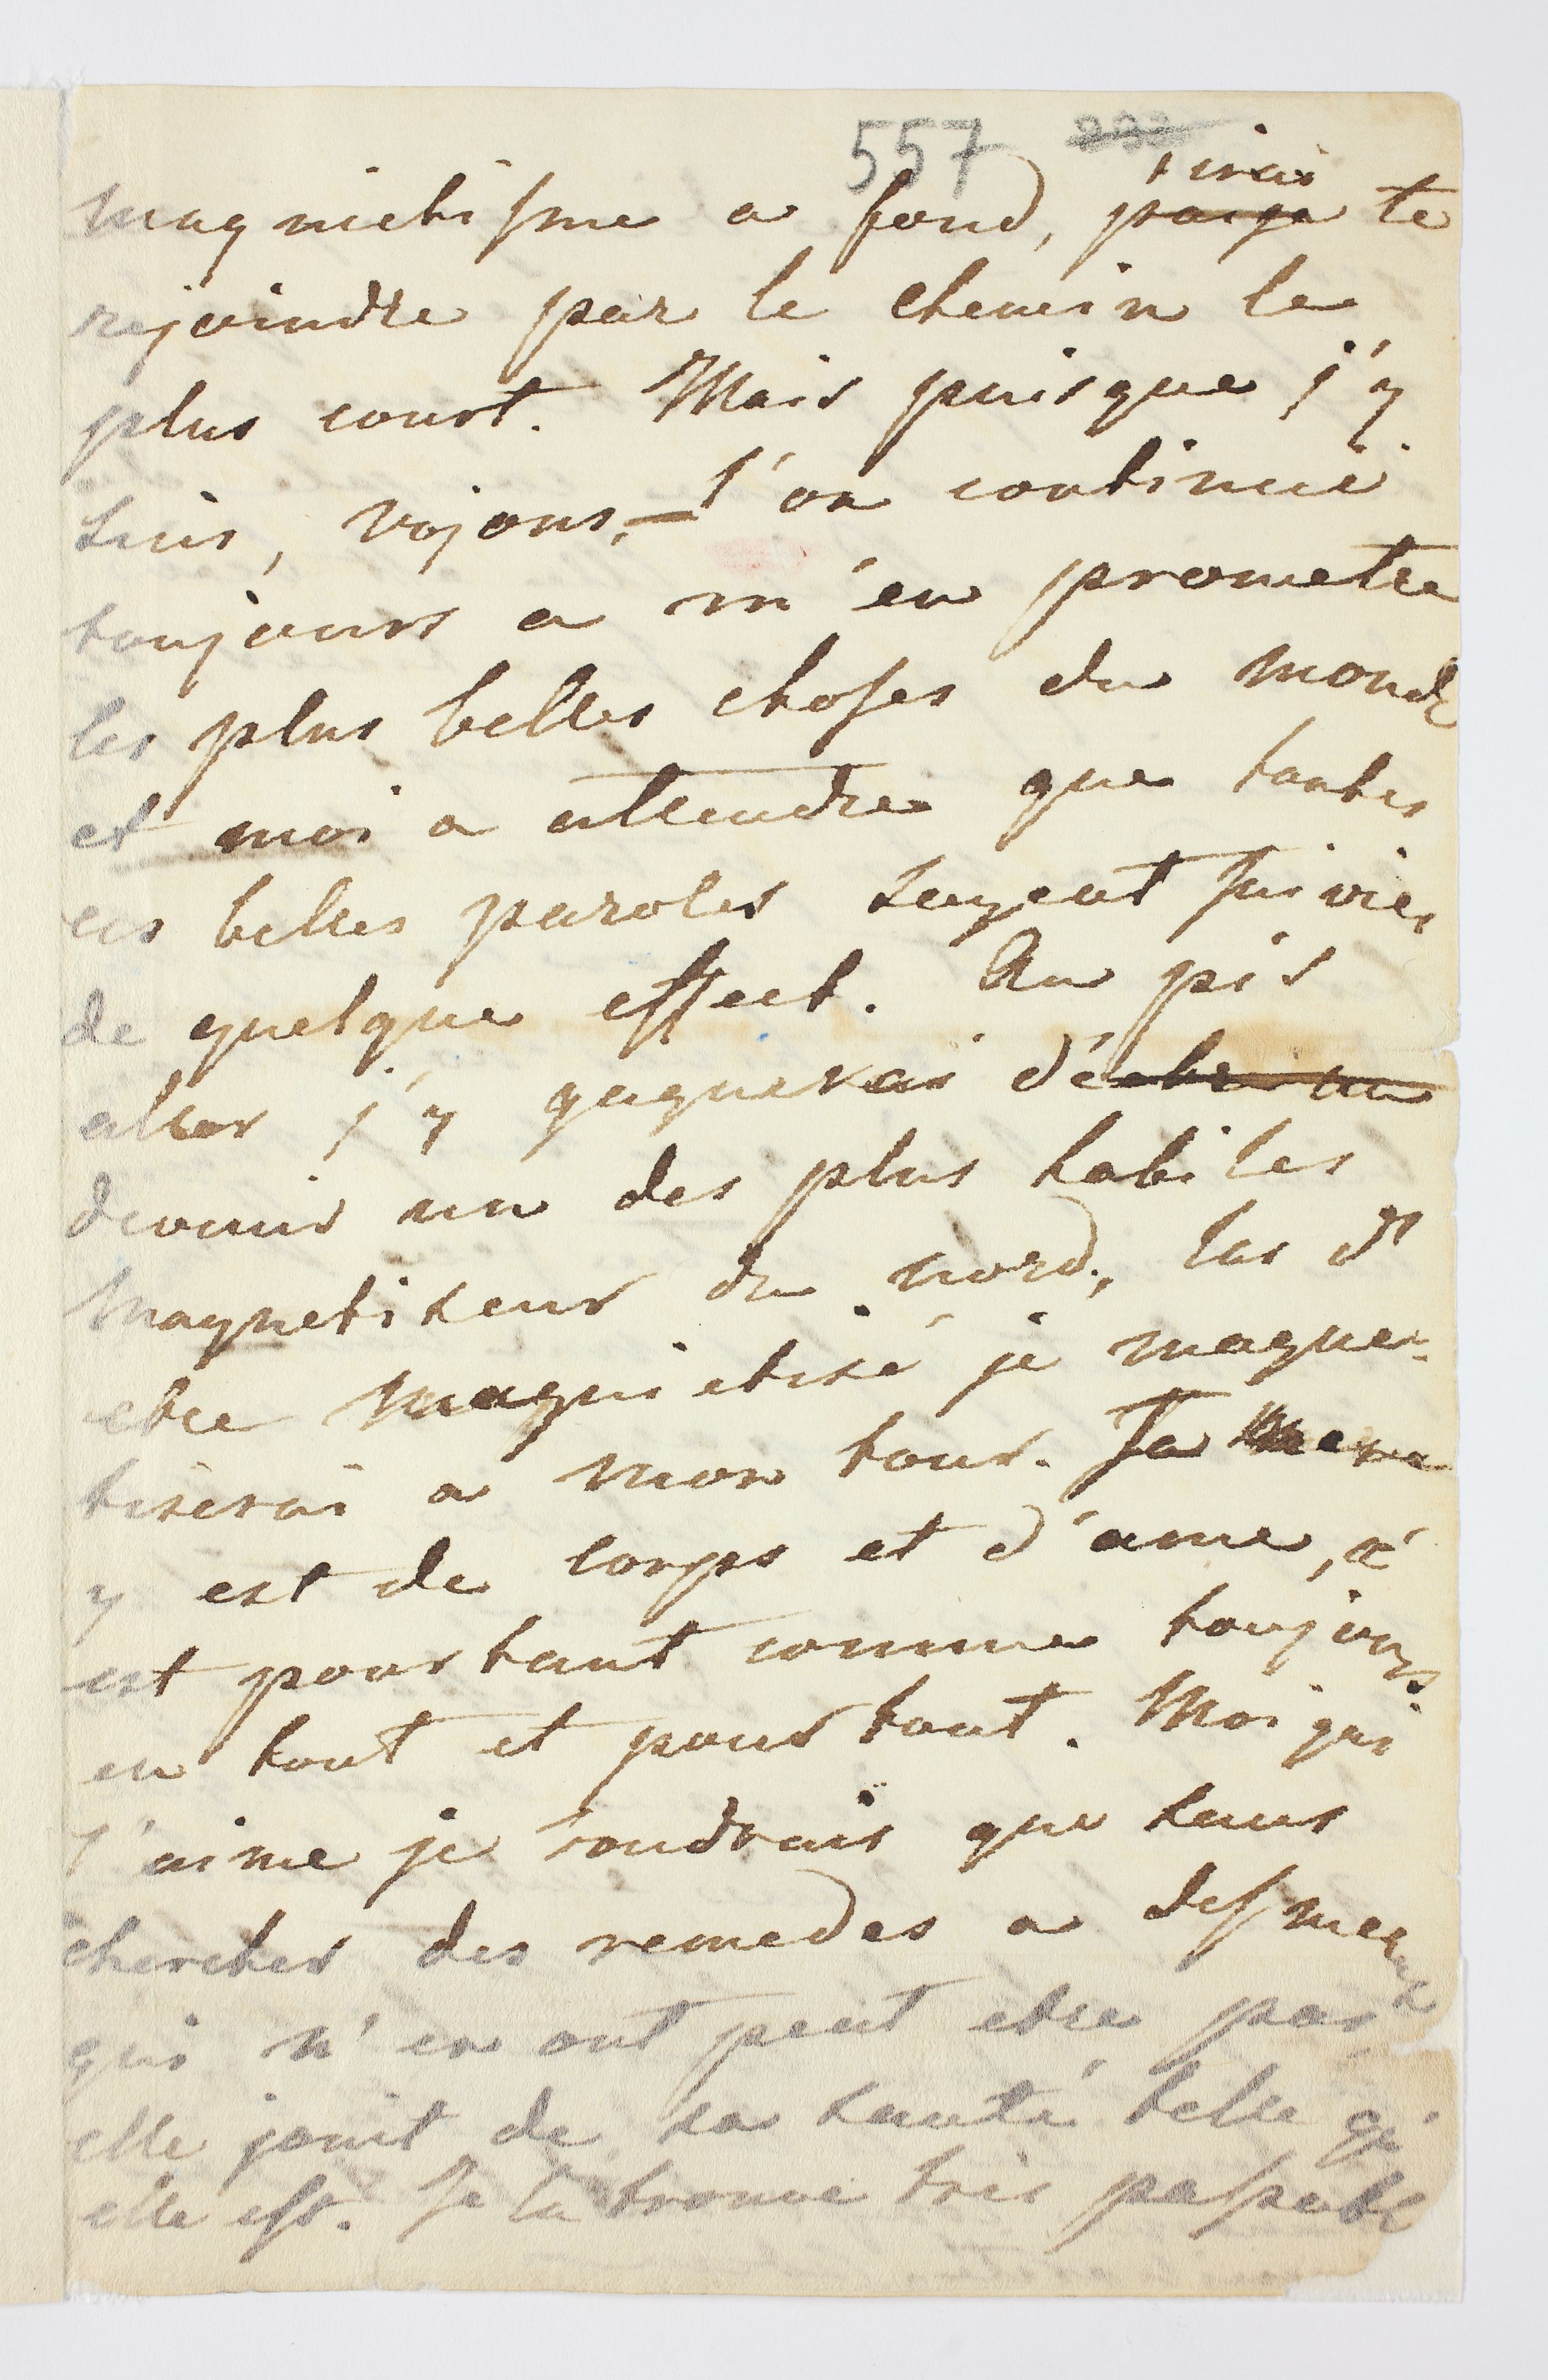 557 232
j'irai
magnietisme a fond, te
rejoindre par le chemin le
plus court. Mais puisque j'y
suis, vojons, l'on continue
toujours a m'en prometre
les plus belles choses du monde
et moi a attendre que toutes
ces belles paroles soyent suivies
de quelque effect. Au pis
aller j'y gagnerai d'être un
devenir un des plus habiles
magnetiseur du nord, las d'
etre magnietisé je magne-
tiserai a mon tour. Ta
y est de corps et d'ame, c'
est pourtant comme toujours
en tout et pour tout. Moi qui
l'aime je voudrais que sans
chercher des remedes a des maux
qui n'en ont peut etre pas,
elle jouit de sa santé telle qu'
elle est. Je la trouve tres passable